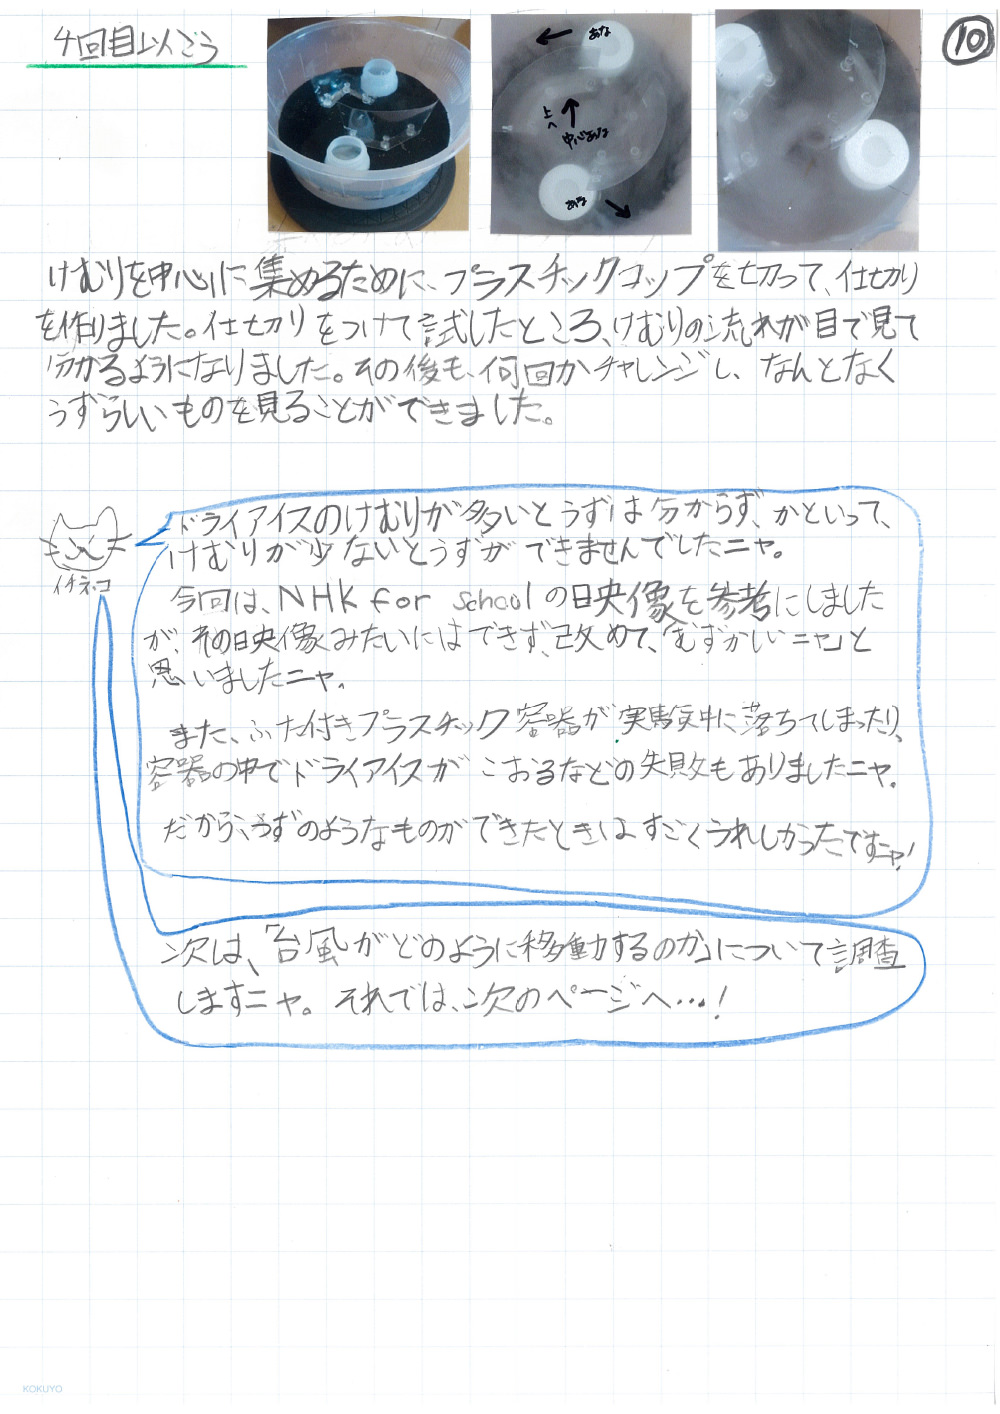 4回目以こう
⑩
あな
上へ
中心あな
あな
けむりを中心に集めるために、プラスチックコップを切って、仕切り
を作りました。仕切りをつけて試したところ、けむりの流れが目で見て
分かるようになりました。その後も、何回かチャレンジし、なんとなく
うずらしいものを見ることができました。
イチネコ
ドライアイスのけむりが多いとうずは分からず、かといって、
けむりが少ないとうずができませんでしたニャ。
今回は、NHK for schoolの映像を参考にしました
が、その映像みたいにはできず、改めて、「むずかしいニャ」と
思いましたニャ。
また、ふた付きプラスチック容器が実験中に落ちてしまったり、
容器の中でドライアイスがこおるなどの失敗もありましたニャ。
だから、うずのようなものができたときはすごくうれしかったですニャ!
次は、「台風がどのように移動するのか」について調査
しますニャ。それでは、次のページへ…!
KOKUYO